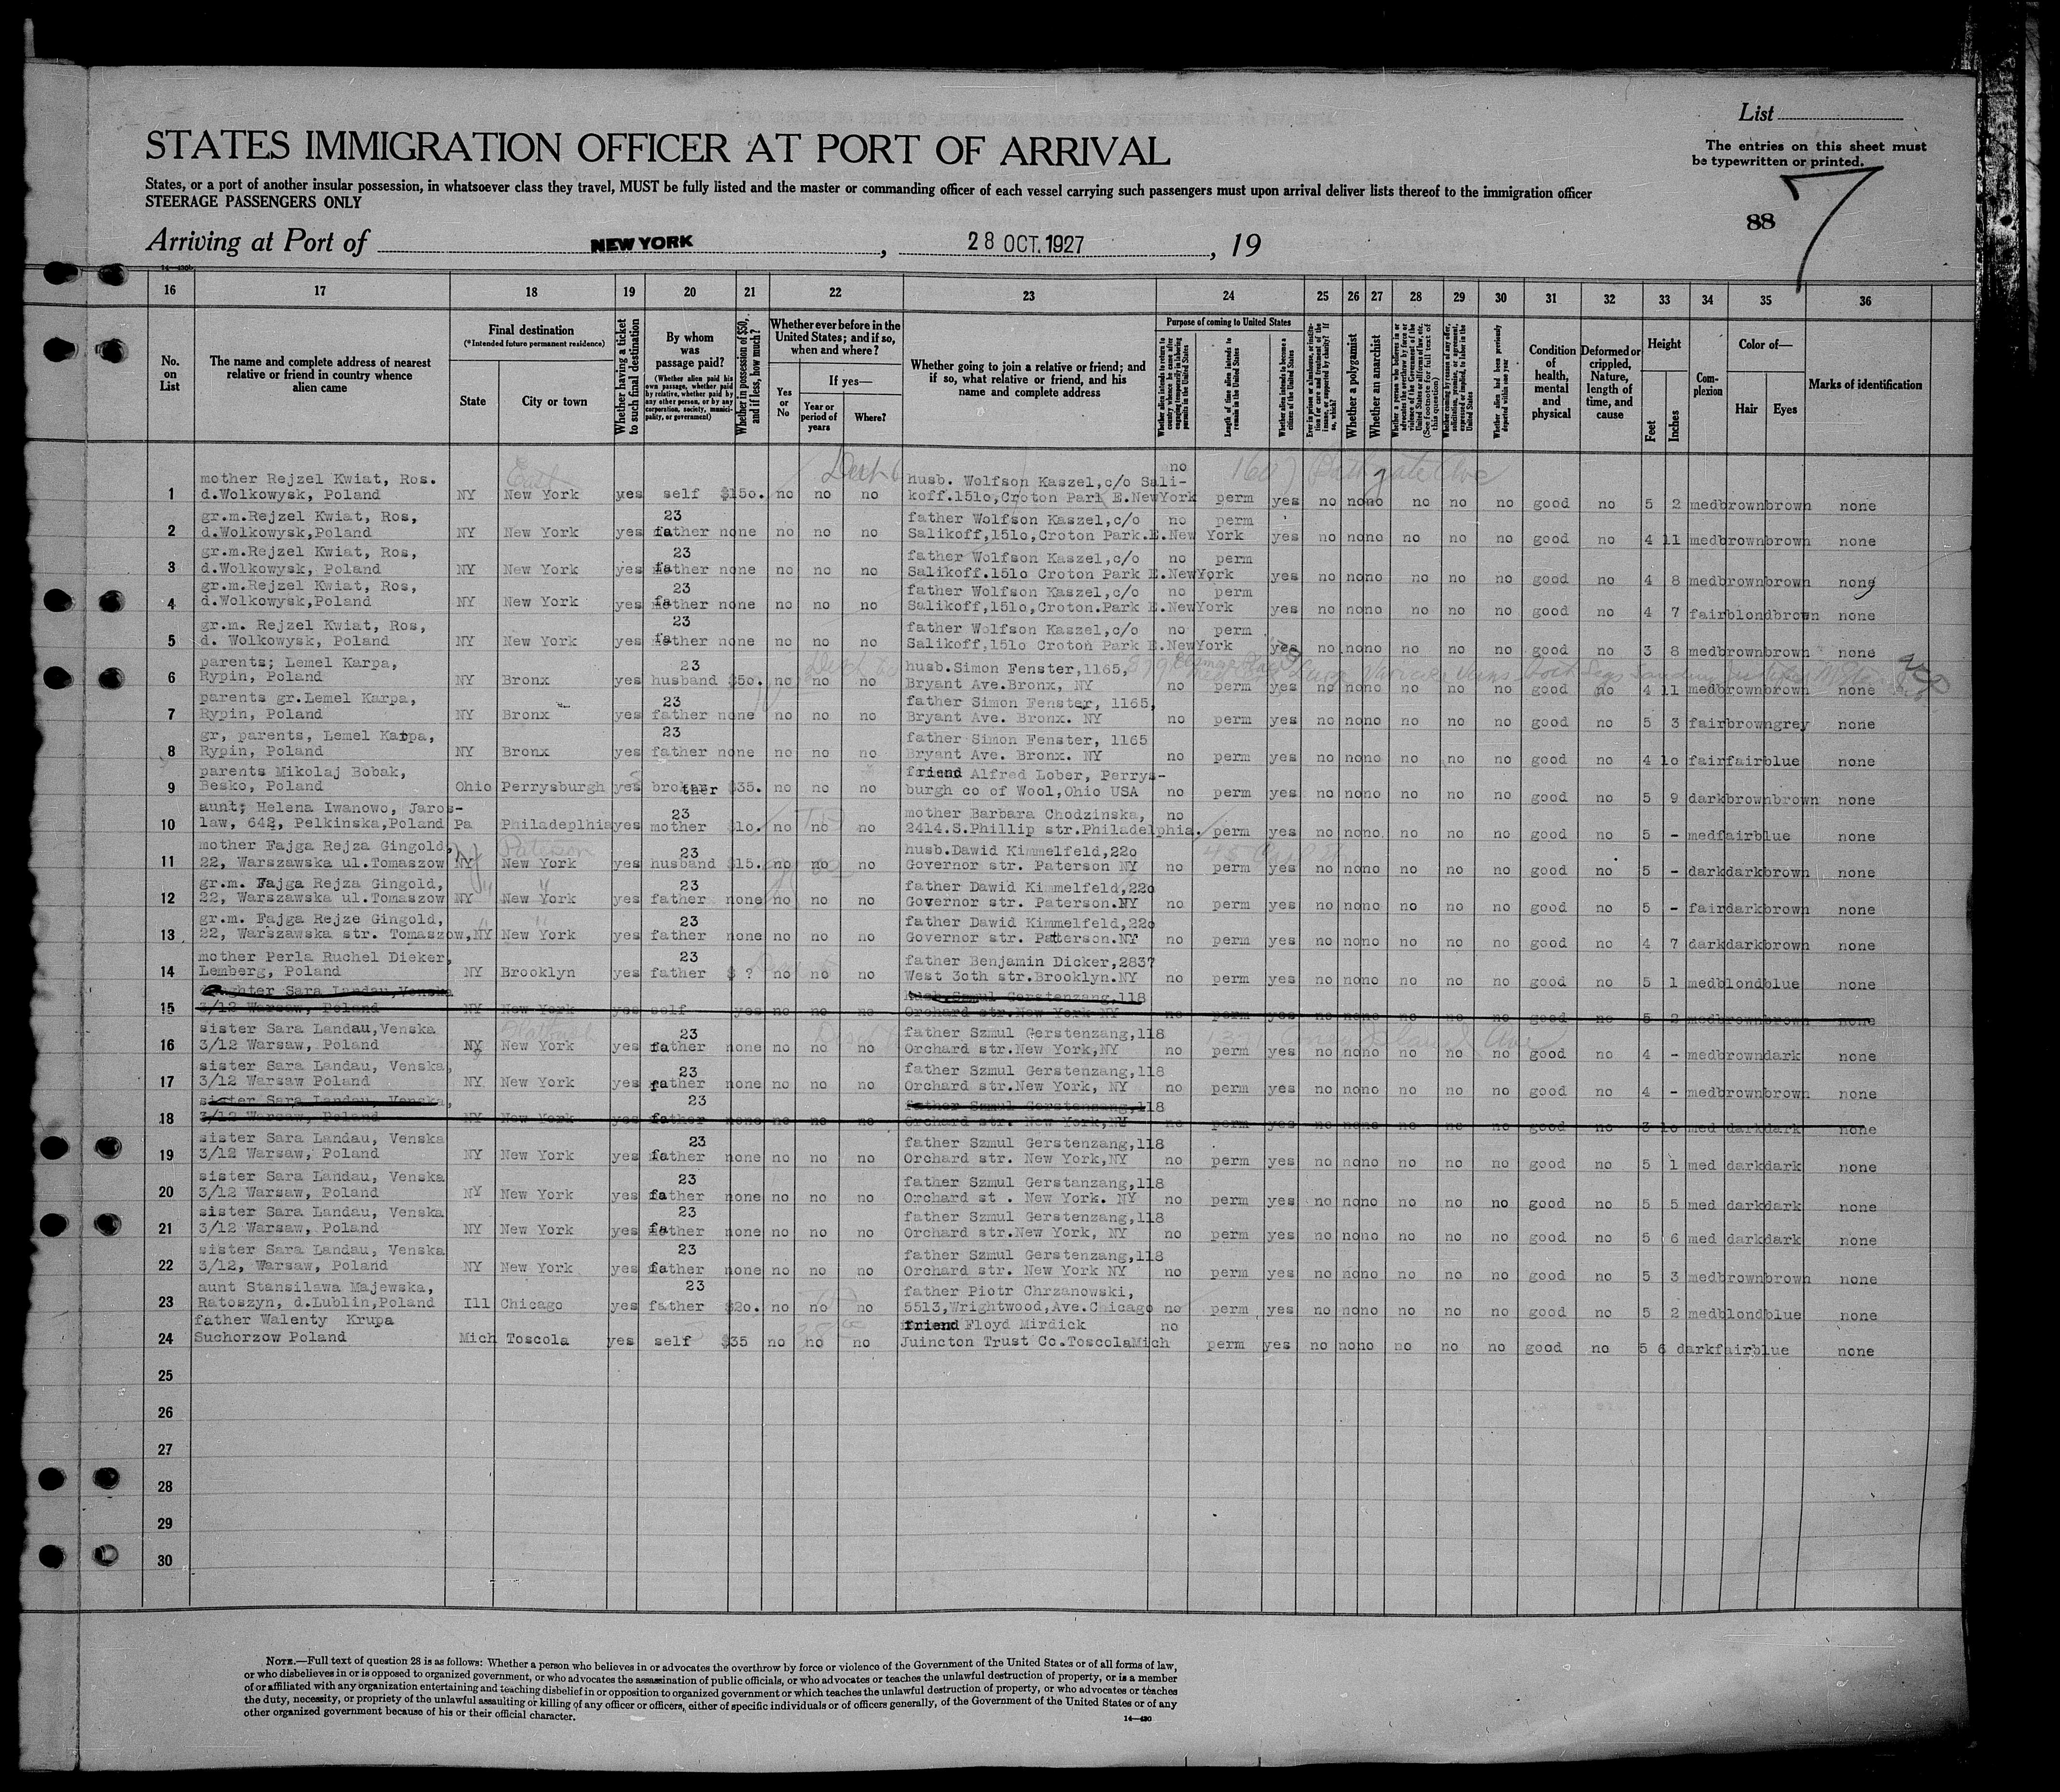 List
STATES IMMIGRATION OFFICER AT PORT OF ARRIVAL
The entries on this sheet must
be typewritten or printed.
States, or a port of another insular possession, in whatsoever class they travel, MUST be fully listed and the master or commanding officer of each vessel carrying such passengers must upon arrival deliver lists thereof to the immigration officer
STEERAGE PASSENGERS ONLY
88 7
Arriving at Port of NEW YORK , 28 OCT. 1927 , 19
16 17 18 19 20 21 22 23 24 25 26 27 28 29 30 31 32 33 34 35 36
No. on List
The name and complete address of nearest relative or friend in country whence alien came
Final destination
(*Intended future permanent residence)
State
City or town
Whether having a ticket to such final destination
By whom was passage paid?
(Whether alien paid his own passage, whether paid by relative, whether paid by any other person, or by any corporation, society, municipality, or government)
Whether in possession of $50, and if less, how much?
Whether ever before in the United States; and if so, when and where?
Yes or No
If yes—
Year or period of years
Where?
Whether going to join a relative or friend; and if so, what relative or friend, and his name and complete address
Purpose of coming to United States
Length of time alien intends to remain in the United States
Whether alien intends to become a citizen of the United States
Whether a polygamist
Whether an anarchist
Condition of health, mental and physical
Deformed or crippled, Nature, length of time, and cause
Height
Feet
Inches
Complexion
Color of—
Hair
Eyes
Marks of identification
mother Rejzel Kwiat, Ros. husb. Wolfson Kaszel,c/o Sali- no
1 d.Wolkowysk, Poland NY New York yes self $150. no no no koff.1510,Croton Park E.NewYork perm yes no no no no no no good no 5 2 med brown brown none
gr.m.Rejzel Kwiat, Ros, 23 father Wolfson Kaszel,c/o no perm
2 d.Wolkowysk,Poland NY New York yes father none no no no Salikoff,1510,Croton Park.E.New York yes no no no no no no good no 4 11 med brown brown none
gr.m.Rejzel Kwiat, Ros, 23 father Wolfson Kaszel,c/o no perm
3 d.Wolkowysk, Poland NY New York yes father none no no no Salikoff.1510 Croton Park E.NewYork yes no no no no no no good no 4 8 med brown brown none
gr.m.Rejzel Kwiat, Ros, 23 father Wolfson Kaszel,c/o no perm
4 d.Wolkowysk,Poland NY New York yes father none no no no Salikoff,1510,Croton.Park E.NewYork yes no no no no no no good no 4 7 fair blond brown none
gr.m. Rejzel Kwiat, Ros, 23 father Wolfson Kaszel,c/o no perm
5 d. Wolkowysk, Poland NY New York yes father none no no no Salikoff,1510 Croton Park E.NewYork yes no no no no no no good no 3 8 med brown brown none
parents; Lemel Karpa, 23 husb.Simon Fenster,1165,
6 Rypin, Poland NY Bronx yes husband $50. no no no Bryant Ave.Bronx, NY no perm yes no no no no no no good no 4 11 med brown brown none
parents gr.Lemel Karpa, 23 father Simon Fenster, 1165,
7 Rypin, Poland NY Bronx yes father none no no no Bryant Ave. Bronx. NY no perm yes no no no no no no good no 5 3 fair brown grey none
gr, parents, Lemel Karpa, 23 father Simon Fenster, 1165
8 Rypin, Poland NY Bronx yes father none no no no Bryant Ave. Bronx. NY no perm yes no no no no no no good no 4 10 fair fair blue none
parents Mikolaj Bobak, friend Alfred Lober, Perrys-
9 Besko, Poland Ohio Perrysburgh yes brother $35. no no no burgh co of Wool,Ohio USA no perm yes no no no no no no good no 5 9 dark brown brown none
aunt; Helena Iwanowo, Jaros- 23 mother Barbara Chodzinska, no
10 law, 642, Pelkinska,Poland Pa Philadeplhia yes mother $10. no no no 2414.S.Phillip str.Philadelphia. perm yes no no no no no no good no 5 - med fair blue none
mother Fajga Rejza Gingold, 23 husb.Dawid Kimmelfeld,220
11 22, Warszawska ul.Tomaszow NY New York yes husband $15. no no no Governor str. Paterson NY no perm yes no no no no no no good no 5 - dark dark brown none
gr.m. Fajga Rejza Gingold, 23 father Dawid Kimmelfeld,220
12 22, Warszawska ul.Tomaszow NY New York yes father none no no no Governor str. Paterson.NY no perm yes no no no no no no good no 5 - fair dark brown none
gr.m. Fajga Rejze Gingold, 23 father Dawid Kimmelfeld,220
13 22, Warszawska str. Tomaszow,NY New York yes father none no no no Governor str. Patterson.NY no perm yes no no no no no no good no 4 7 dark dark brown none
mother Perla Ruchel Dieker, 23 father Benjamin Dicker,2837
14 Lemberg, Poland NY Brooklyn yes father $ ? no no no West 30th str.Brooklyn.NY no perm yes no no no no no no good no 5 1 med blond blue none
daughter Sara Landau,Venska husb.Szmul Gerstenzang,118
15 3/12 Warsaw, Poland NY New York yes self yes no no no Orchard str.New York NY no perm yes no no no no no no good no 5 2 med brown brown none
sister Sara Landau,Venska 23 father Szmul Gerstenzang,118
16 3/12 Warsaw, Poland NY New York yes father none no no no Orchard str.New York,NY no perm yes no no no no no no good no 4 - med brown dark none
sister Sara Landau, Venska, 23 father Szmul Gerstenzang,118
17 3/12 Warsaw Poland NY New York yes father none no no no Orchard str.New York, NY no perm yes no no no no no no good no 4 - med brown brown none
sister Sara Landau, Venska, 23 father Szmul Gerstenzang,118
18 3/12 Warsaw, Poland NY New York yes father none no no no Orchard str. New York,NY no perm yes no no no no no no good no 3 10 med dark dark none
sister Sara Landau, Venska 23 father Szmul Gerstenzang,118
19 3/12 Warsaw, Poland NY New York yes father none no no no Orchard str. New York,NY no perm yes no no no no no no good no 5 1 med dark dark none
sister Sara Landau, Venska 23 father Szmul Gerstanzang,118
20 3/12 Warsaw, Poland NY New York yes father none no no no Orchard st . New York. NY no perm yes no no no no no no good no 5 5 med dark dark none
sister Sara Landau, Venska 23 father Szmul Gerstenzang,118
21 3/12 Warsaw, Poland NY New York yes father none no no no Orchard str.New York, NY no perm yes no no no no no no good no 5 6 med dark dark none
sister Sara Landau, Venska 23 father Szmul Gerstenzang,118
22 3/12, Warsaw, Poland NY New York yes father none no no no Orchard str. New York NY no perm yes no no no no no no good no 5 3 med brown brown none
aunt Stansilawa Majewska, 23 father Piotr Chrzanowski,
23 Ratoszyn, d.Lublin,Poland Ill Chicago yes father $20. no no no 5513,Wrightwood,Ave.Chicago no perm yes no no no no no no good no 5 2 med blond blue none
father Walenty Krupa friend Floyd Mirdick no
24 Suchorzow Poland Mich Toscola yes self $35 no no no Juincton Trust Co.ToscolaMich perm yes no no no no no no good no 5 6 dark fair blue none
25
26
27
28
29
30
NOTE.—Full text of question 28 is as follows: Whether a person who believes in or advocates the overthrow by force or violence of the Government of the United States or of all forms of law,
or who disbelieves in or is opposed to organized government, or who advocates the assassination of public officials, or who advocates or teaches the unlawful destruction of property, or is a member
of or affiliated with any organization entertaining and teaching disbelief in or opposition to organized government or which teaches the unlawful destruction of property, or who advocates or teaches
the duty, necessity, or propriety of the unlawful assaulting or killing of any officer or officers, either of specific individuals or of officers generally, of the Government of the United States or of any
other organized government because of his or their official character.
14—430